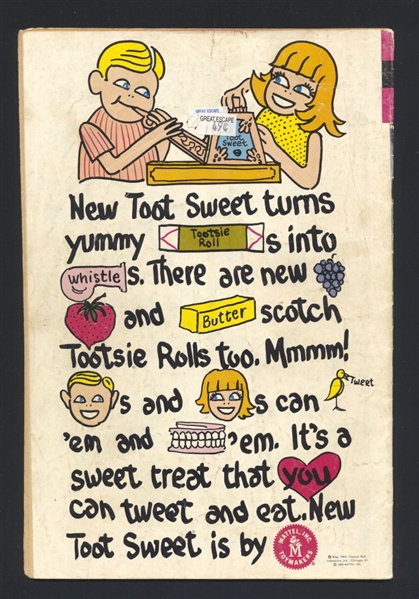 GREAT ESCAPE
GREAT ESCAPE
49¢
Toot
Sweet
New Toot Sweet turns
yummy Tootsie Roll s into
whistle s. There are new
and Butter scotch
Tootsie Rolls too. Mmmm!
s and s can Tweet
'em and 'em. It's a
sweet treat that you
can tweet and eat. New
Toot Sweet is by MATTEL, INC. TOYMAKERS M